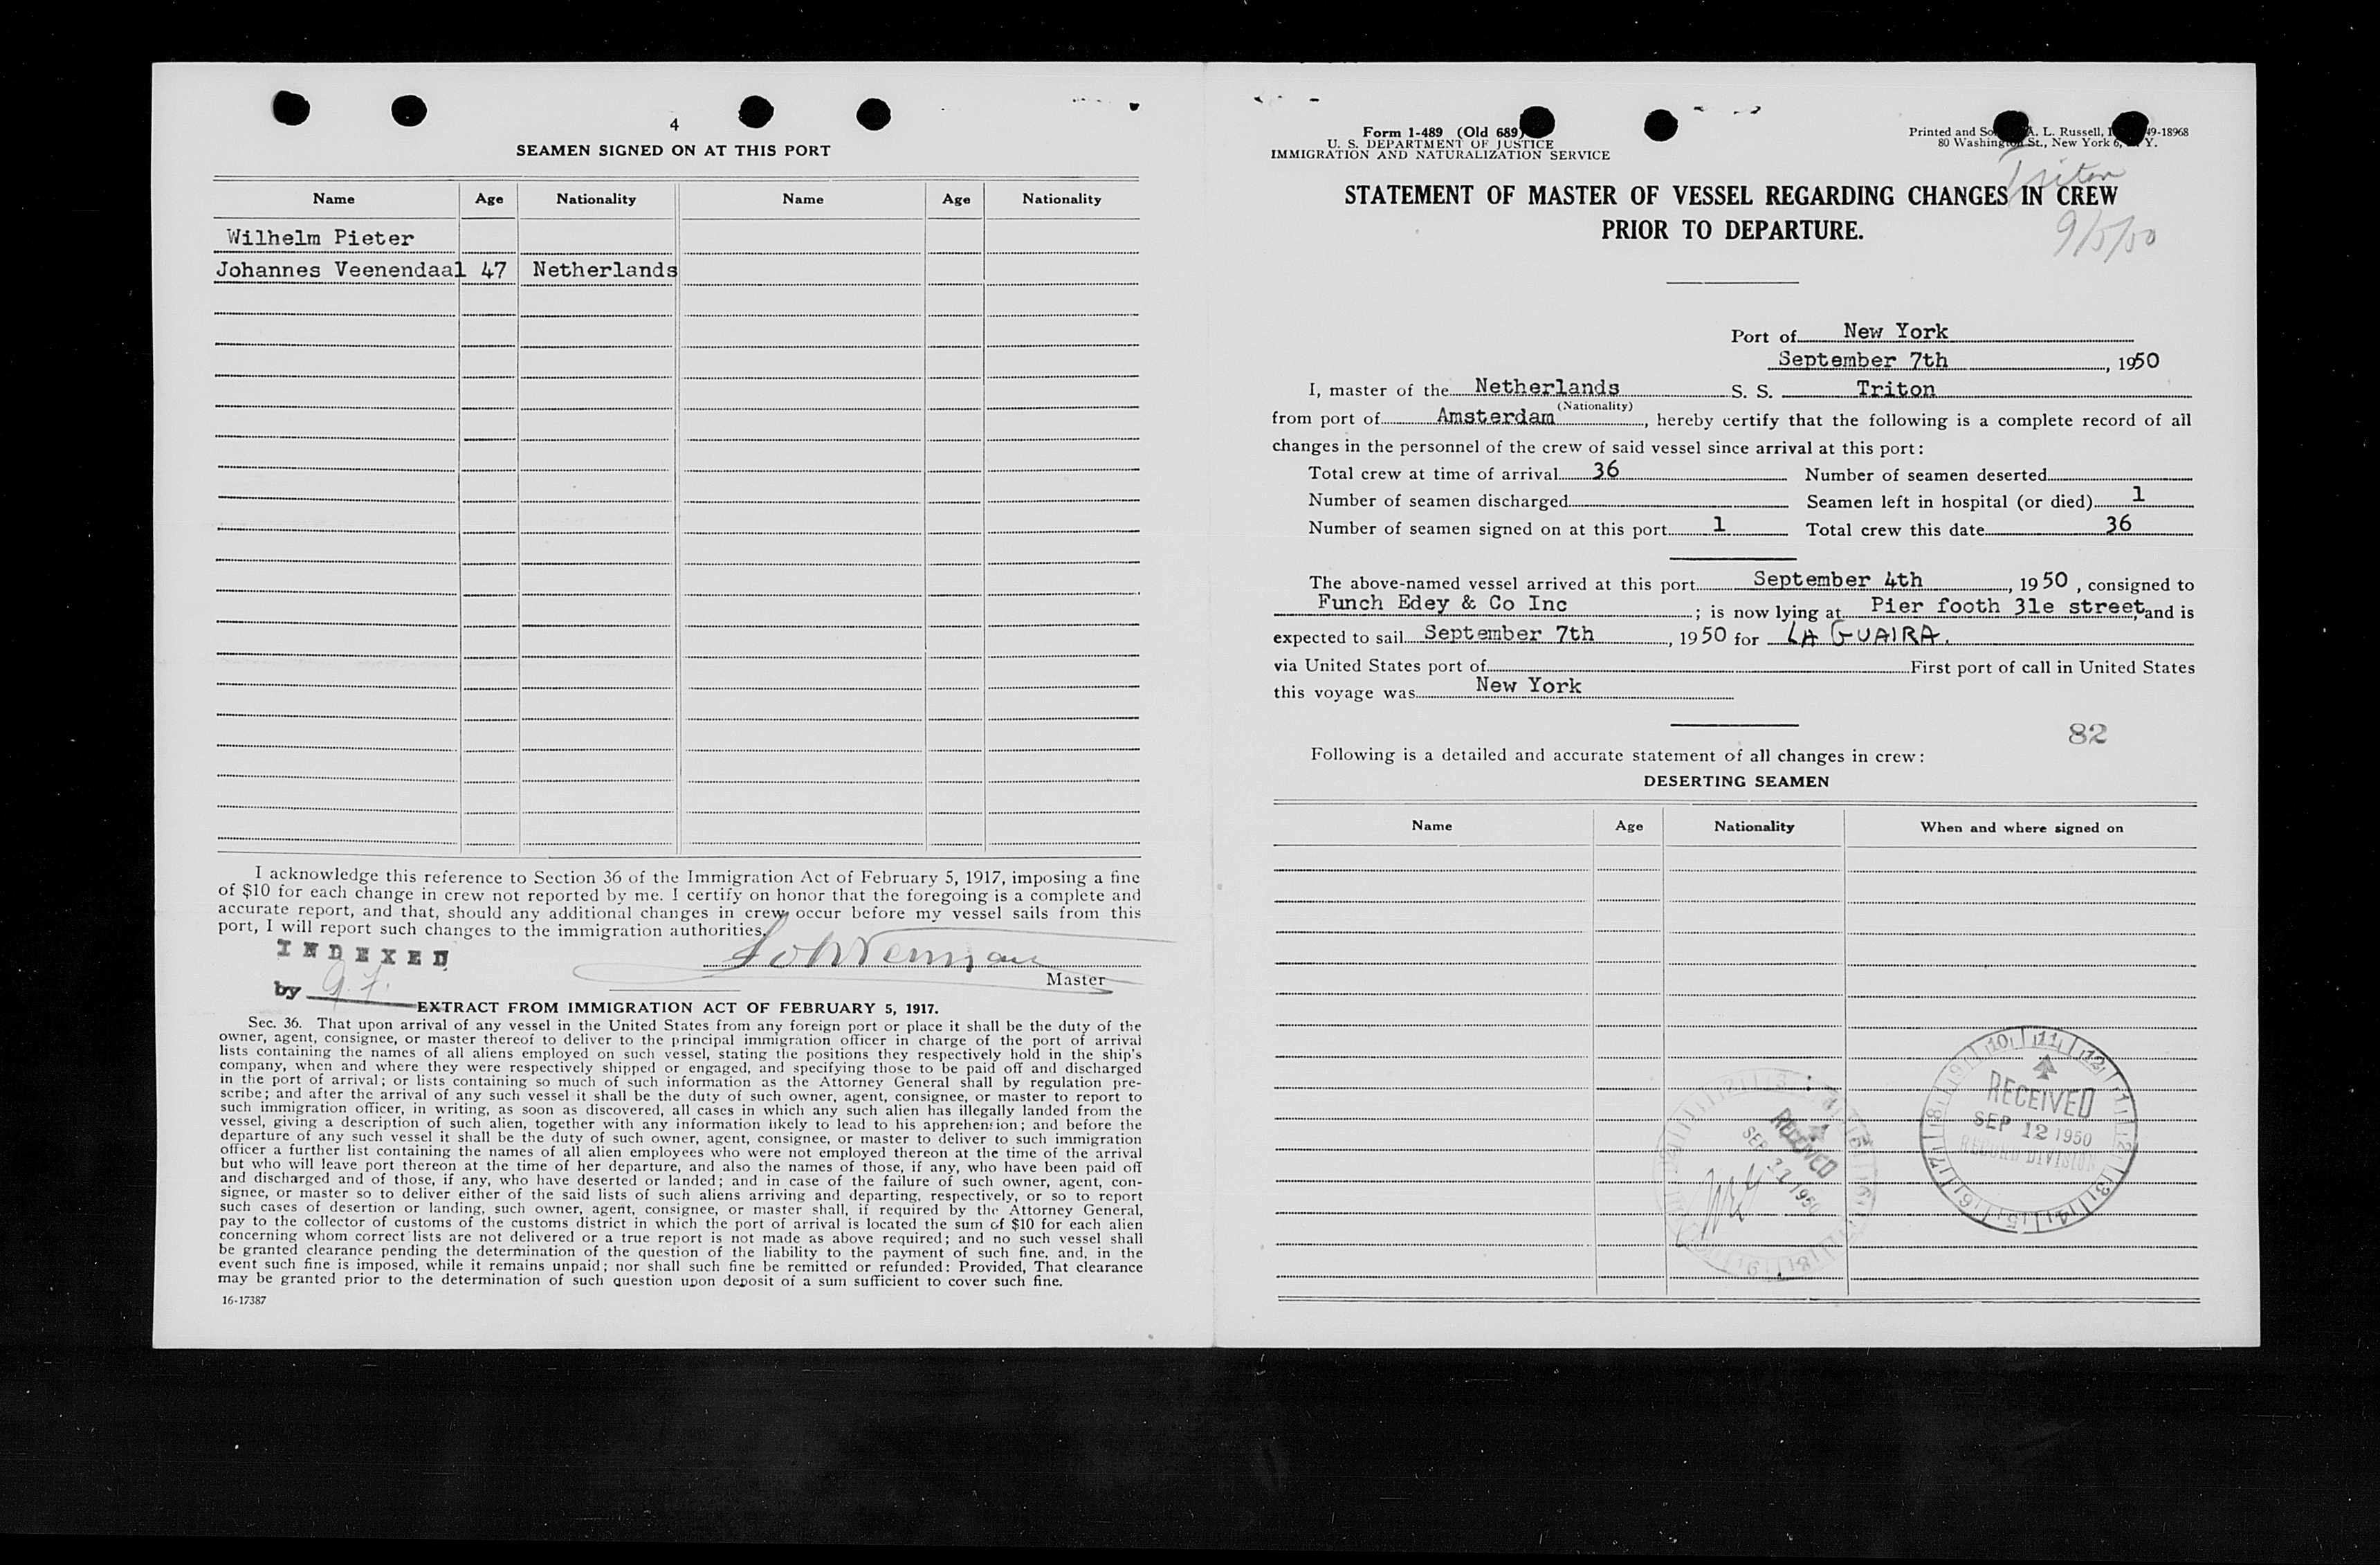 4
SEAMEN SIGNED ON AT THIS PORT
Name Age Nationality Name Age Nationality
Wilhelm Pieter
Johannes Veenendaal 47 Netherlands
I acknowledge this reference to Section 36 of the Immigration Act of February 5, 1917, imposing a fine
of $10 for each change in crew not reported by me. I certify on honor that the foregoing is a complete and
accurate report, and that, should any additional changes in crew occur before my vessel sails from this
port, I will report such changes to the immigration authorities.
INDEXED
Master
by
EXTRACT FROM IMMIGRATION ACT OF FEBRUARY 5, 1917.
Sec. 36. That upon arrival of any vessel in the United States from any foreign port or place it shall be the duty of the
owner, agent, consignee, or master thereof to deliver to the principal immigration officer in charge of the port of arrival
lists containing the names of all aliens employed on such vessel, stating the positions they respectively hold in the ship's
company, when and where they were respectively shipped or engaged, and specifying those to be paid off and discharged
in the port of arrival; or lists containing so much of such information as the Attorney General shall by regulation pre-
scribe; and after the arrival of any such vessel it shall be the duty of such owner, agent, consignee, or master to report to
such immigration officer, in writing, as soon as discovered, all cases in which any such alien has illegally landed from the
vessel, giving a description of such alien, together with any information likely to lead to his apprehension; and before the
departure of any such vessel it shall be the duty of such owner, agent, consignee, or master to deliver to such immigration
officer a further list containing the names of all alien employees who were not employed thereon at the time of the arrival
but who will leave port thereon at the time of her departure, and also the names of those, if any, who have been paid off
and discharged and of those, if any, who have deserted or landed; and in case of the failure of such owner, agent, con-
signee, or master so to deliver either of the said lists of such aliens arriving and departing, respectively, or so to report
such cases of desertion or landing, such owner, agent, consignee, or master shall, if required by the Attorney General,
pay to the collector of customs of the customs district in which the port of arrival is located the sum of $10 for each alien
concerning whom correct lists are not delivered or a true report is not made as above required; and no such vessel shall
be granted clearance pending the determination of the question of the liability to the payment of such fine, and, in the
event such fine is imposed, while it remains unpaid; nor shall such fine be remitted or refunded: Provided, That clearance
may be granted prior to the determination of such question upon deposit of a sum sufficient to cover such fine.
16-17387
Form 1-489 (Old 689)
U. S. DEPARTMENT OF JUSTICE
IMMIGRATION AND NATURALIZATION SERVICE
Printed and A. L. Russell, 49-18968
80 Washington St., New York 6, Y.
Triton
STATEMENT OF MASTER OF VESSEL REGARDING CHANGES IN CREW
PRIOR TO DEPARTURE.
9/5/50
Port of New York
September 7th, 1950
I, master of the Netherlands S. S. Triton
(Nationality)
from port of Amsterdam, hereby certify that the following is a complete record of all
changes in the personnel of the crew of said vessel since arrival at this port:
Total crew at time of arrival 36 Number of seamen deserted
Number of seamen discharged Seamen left in hospital (or died) 1
Number of seamen signed on at this port 1 Total crew this date 36
The above-named vessel arrived at this port September 4th, 1950, consigned to
Funch Edey & Co Inc; is now lying at Pier footh 31e street, and is
expected to sail September 7th, 1950 for LA GUAIRA.
via United States port of First port of call in United States
this voyage was New York
82
Following is a detailed and accurate statement of all changes in crew:
DESERTING SEAMEN
Name Age Nationality When and where signed on
RECEIVED
SEP 12 1950
RECORD DIVISION
RECEIVED
SEP 11 1950